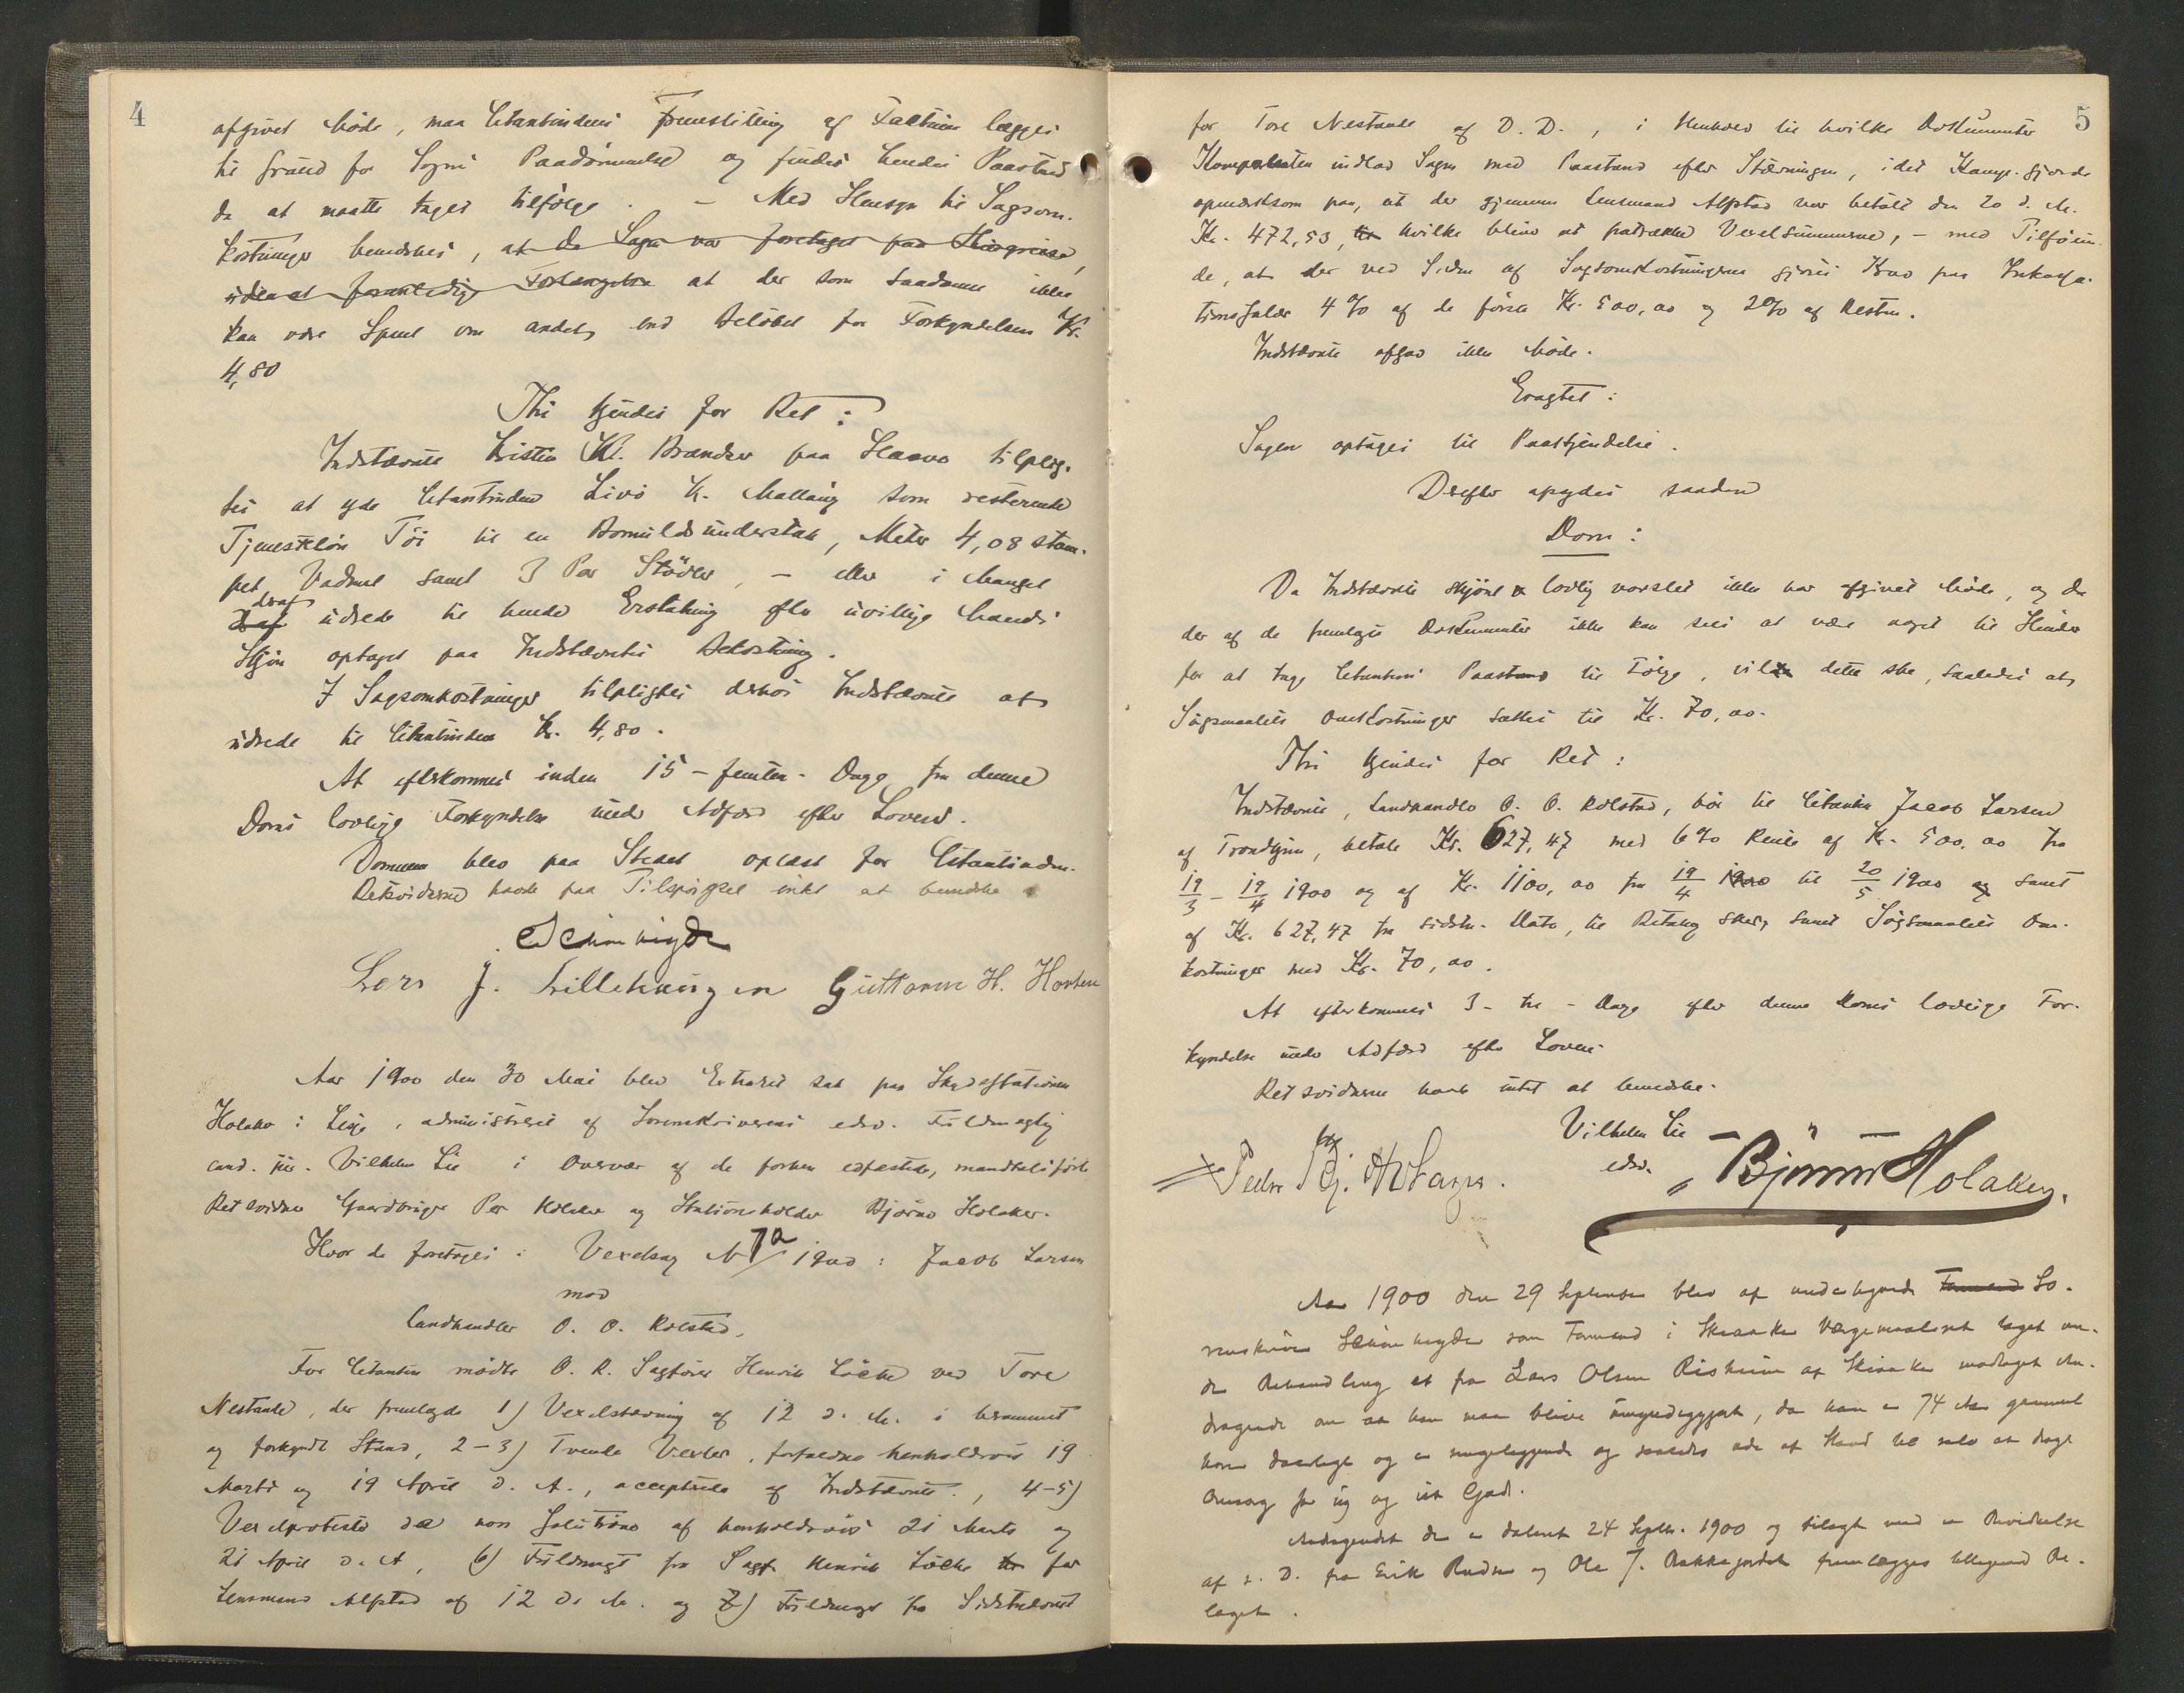 4
afgivet Møde, maa Citantindens Fremstilling af Factum lægges
til Grund for Sagens Paadømmelse og findes hendes Paastand
da at maatte tages tilfølge. – Med Hensyn til Sagsom-
kostninger bemærkes, at da Sagen var foretaget paa
uden at foranledige at der som saadanne ikke
kan være Spm. om andet end Beløbet for Forkyndelsen Kr.
4,80
Thi kjendes for Ret:
Indstævnte Kristen Kr. Brændser paa tilplig-
tes at yde Citantinden Livø K. Malling som resterende
Tjenesteløn Tøi til en Bomuldsunderstak, Meter 4,08 stam-
pet Vadmel samt 3 Par – eller i Mangel
deraf udrede til hende Erstatning efter uvillige Mænds
Skjøn optaget paa Indstævntes Bekostning.
I Sagsomkostninger tilpligtes derhos Indstævnte at
udrede til Citantinden Kr. 4,80.
At efterkommes inden 15 – femten – Dage fra denne
Doms lovlige Forkyndelse under Adfærd efter Loven.
Dommen blev paa Stedet oplæst for Citantinden.
Retsvidnerne havde paa Tilspørgsel intet at bemærke.
Lars J. Lillehaugen Guttorm H. Horten
Aar 1900 den 30 Mai blev Extraret sat paa Skydsstationen
Holaker i Lesje, administreret af Sorenskriverens edsv. Fuldmægtig
cand. jur. Vilhelm Lie i Overvær af de forhen edfæstede, mandtalsførte
Retsvidner Gaardbruger Per Holaker og Stationsholder Bjørner Holaker.
Hvor da foretoges: Vexelsag N 7a/1900: Jacob Larsen
mod
Landhandler O. O. Kolstad.
For Citanten mødte O. R. Sagfører Henrik Løcke ved Tore
Nestande, der fremlagde 1) Vexelstævning af 12 d. M. i berammet
og forkyndt Stand, 2–3) Tvende Vexler, forfaldne henholdsvis 19
Marts og 19 April d. A., accepterede af Indstævnte, 4–5)
Vexelprotester de non solutione af henholdsvis 21 Marts og
21 April d. A, 6) Fuldmagt fra Sagf. Henrik Løcke for
Lensmand Alfstad af 12 d. M. og 7) Fuldmagt fra Sidstnævnte
5
for Tore Nestande af D. D., i Henhold til hvilke Dokumenter
Komparenten indlod Sagen med Paastand efter Stævningen, idet Komp. gjorde
opmærksom paa, at der gjennem Lensmand Alfstad var betalt den 20 d. M.
Kr. 472,53, hvilke blive at fratrække Vexelsummerne, – med Tilføien-
de, at der ved Siden af Sagsomkostningerne gjøres Krav paa Inkassa-
tionssalær 4 % af de første Kr. 500,00 og 2% af Resten.
Indstævnte afgav ikke Møde.
Eragtet:
Sagen optages til Paakjendelse.
Derefter afsagdes saadan
Dom:
Da Indstævnte skjønt lovlig varslet ikke har afgivet Møde, og da
der af de fremlagte Dokumenter ikke kan sees at være noget til Hinder
for at tage Citantens Paastand til Følge, vil dette ske, saaledes at
Søgsmaalets Omkostninger sættes til Kr. 70,00.
Thi kjendes for Ret:
Indstævnte, Landhandler O. O. Kolstad, bør til Citanten Jacob Larsen
af Trondhjem, betale Kr. 627,47 med 6% Rente af Kr. 500,00 fra
19/3 – 19/4 1900 og af Kr. 1100,00 fra 19/4 1900 til 20/5 1900 og samt
af Kr. 627,47 fra sidstn. Dato, til Betaling sker, samt Søgsmaalets Om-
kostninger med Kr. 70,00.
At efterkommes 3 – tre – Dage efter denne Doms lovlige For-
kyndelse under Adfærd efter Loven.
Retsvidnerne havde intet at bemærke.
Vilhelm Lie
edsv.
Peder Bj. Holager. Bjørner Holaker.
Aar 1900 den 29 September blev af undertegnede Formand So-
renskriver som Formand i Skiaker Værgemaalsret taget un-
der Behandling et fra Lars Olsen Risheim af Skiaker modtaget An-
dragende om at han maa blive umyndiggjort, da han er 74 Aar gammel
hører daarligt og er sengeliggende og saaledes ude af Stand til selv at drage
Omsorg for sig og sit Gods.
Andragendet der er dateret 24 Septbr. 1900 og bilagt med en Bevidnelse
af s. D. fra Erik Rudne og Ole J. Bakkejordet fremlægges tilligemed Be-
laget.